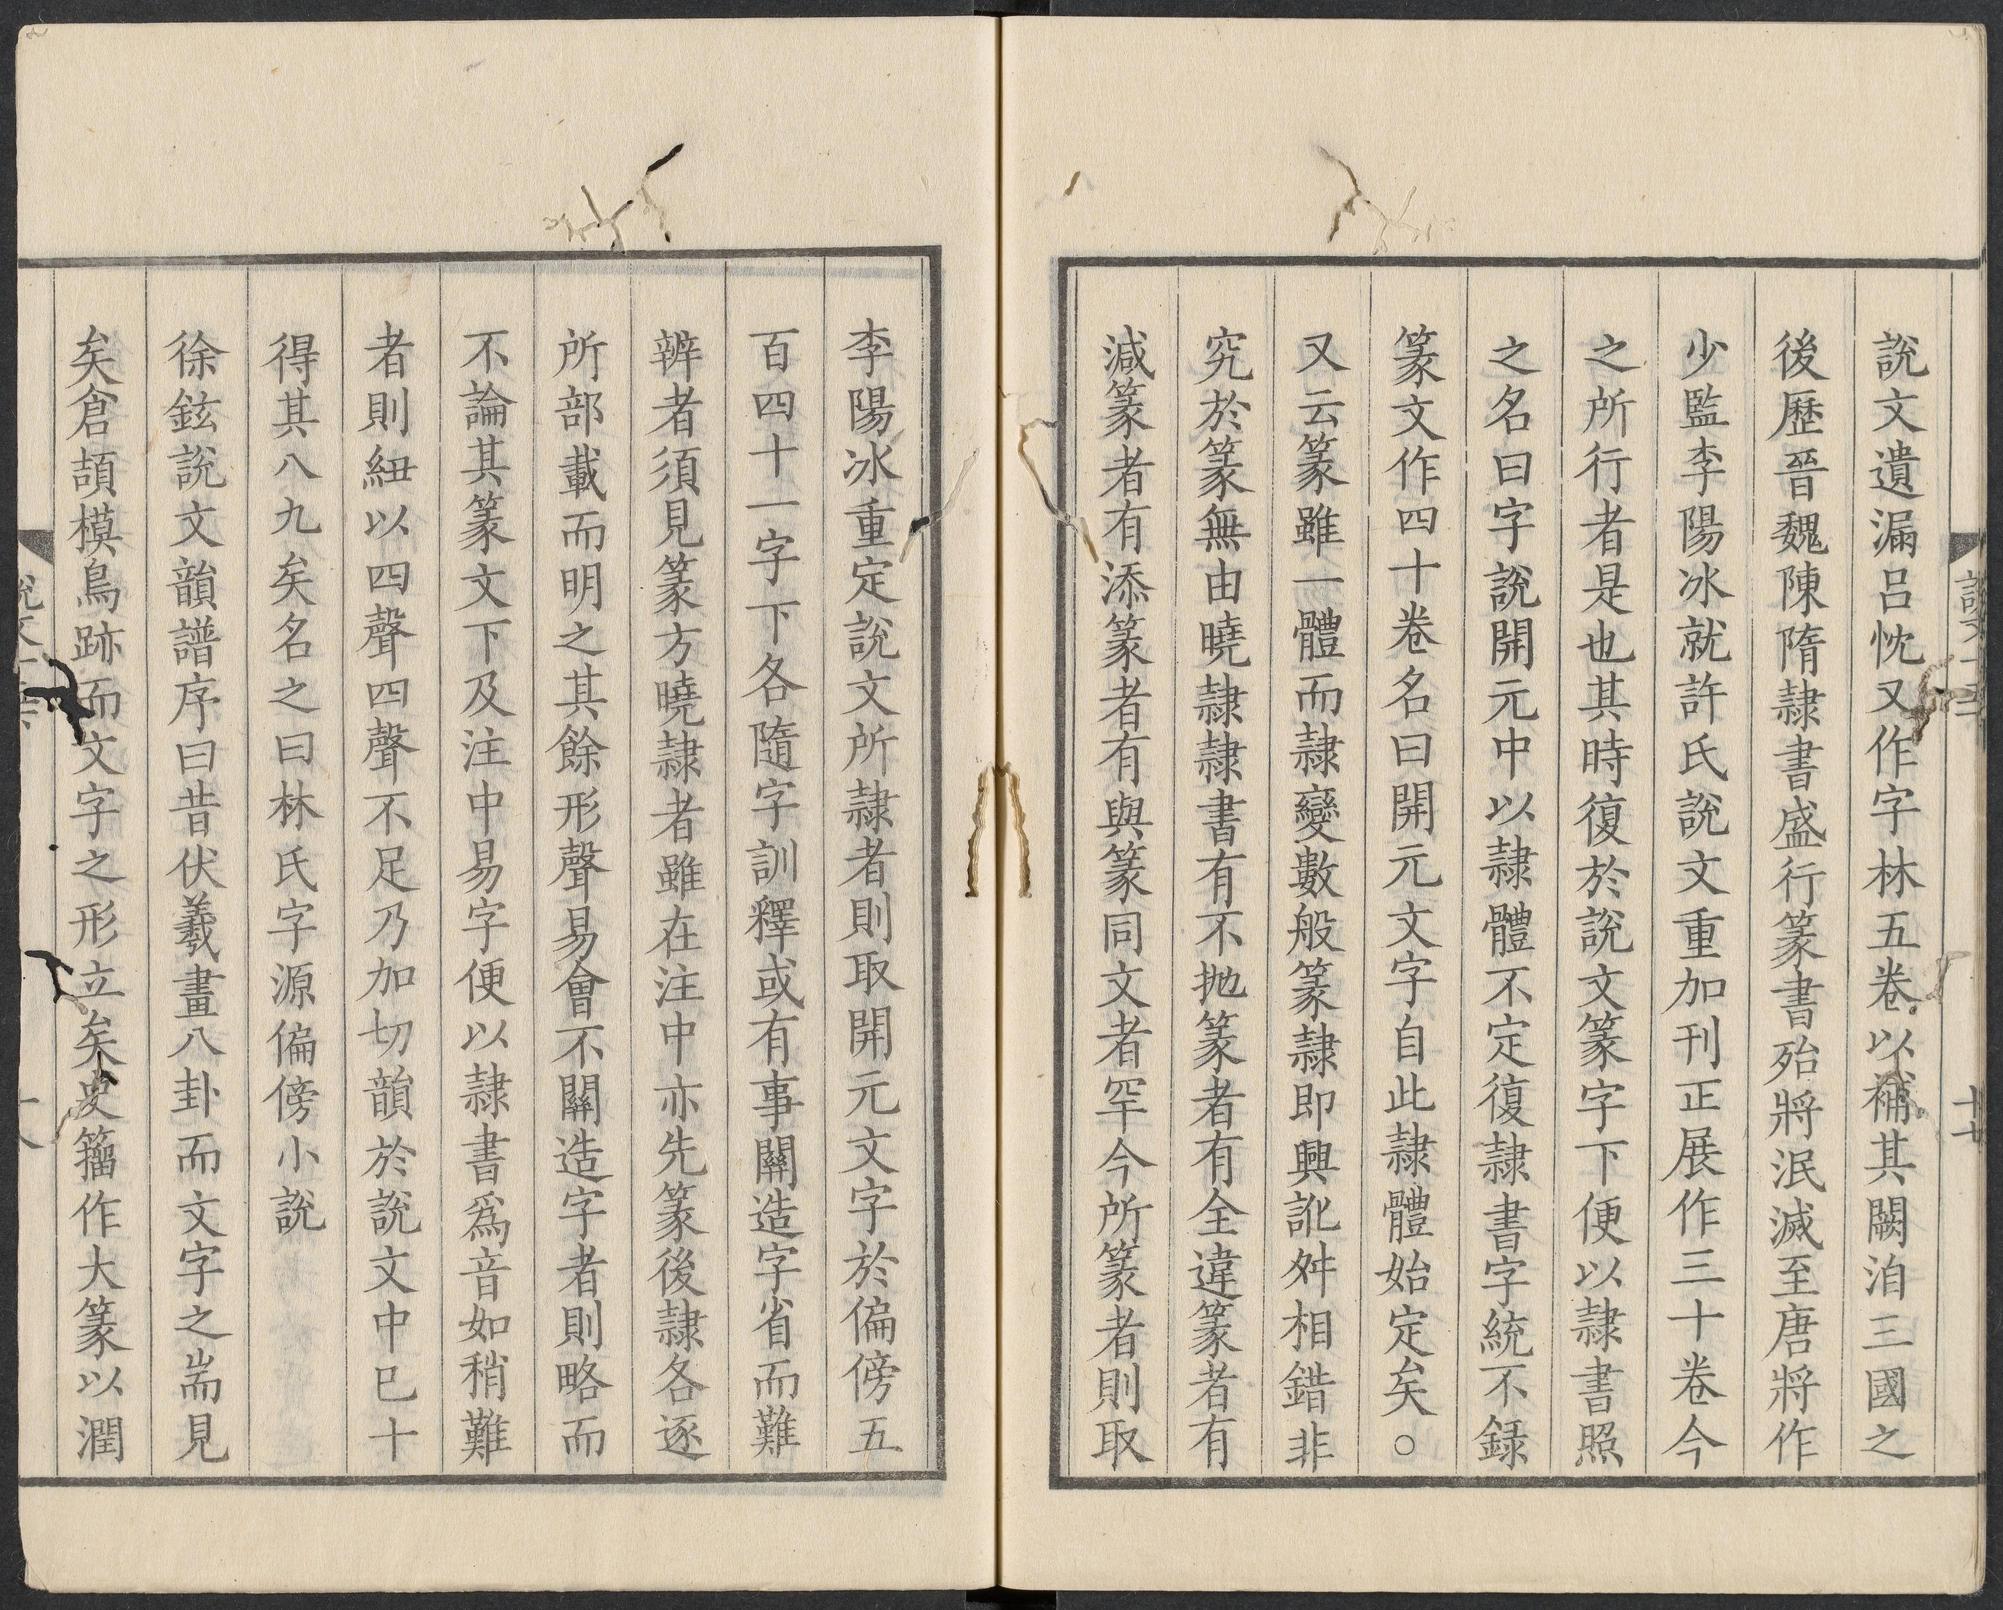 說文遺漏呂忱又作字林五卷以補其闕洎三國之
後歷晉魏陳隋隷書盛行篆書殆將泯滅至唐將作
少監李陽冰就許氏說文重加刊正展作三十卷今
之所行者是也其時復於說文篆字下便以隷書照
之名曰字說開元中以隷體不定復隷書字統不録
篆文作四十卷名曰開元文字自此隷體始定矣○
又云篆雖一體而隷變數般篆隷即興訛舛相錯非
究於篆無由曉隷隷書有不抛篆者有全違篆者有
減篆者有添篆者有與篆同文者罕今所篆者則取
李陽冰重定說文所隷者則取開元文字於偏傍五
百四十一字下各隨字訓釋或有事關造字省而難
辨者須見篆方曉隷者雖在注中亦先篆後隷各逐
所部載而明之其餘形聲易會不關造字者則略而
不論其篆文下及注中易字便以隷書爲音如稍難
者則紐以四聲四聲不足乃加切韻於說文中已十
得其八九矣名之曰林氏字源偏傍小說
徐鉉說文韻譜序曰昔伏羲畫八卦而文字之耑見
矣倉頡模鳥跡而文字之形立矣史籀作大篆以潤